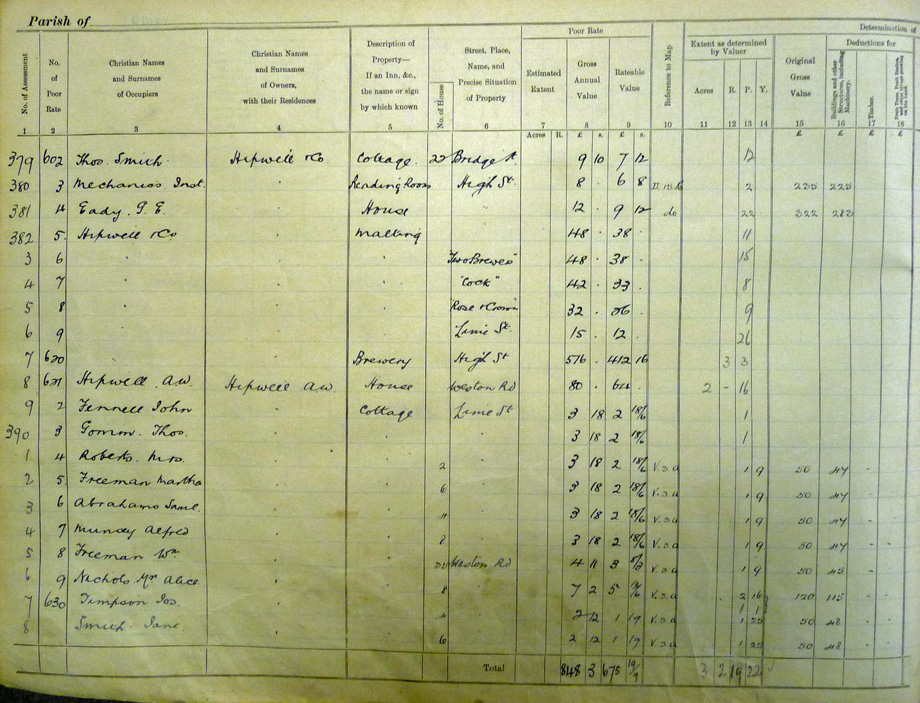 Parish of
Determination of
Poor Rate
Extent as determined by Valuer
Deductions for
No. of Assessment
No. of Poor Rate
Christian Names and Surnames of Occupiers
Christian Names and Surnames of Owners, with their Residences
Description of Property— If an Inn, &c., the name or sign by which known
No. of House
Street, Place, Name, and Precise Situation of Property
Estimated Extent
Gross Annual Value
Rateable Value
Reference to Map
Acres R. P. Y.
Original Gross Value
Buildings and other Structures, including Machinery.
Timber.
1 2 3 4 5 6 7 8 9 10 11 12 13 14 15 16 17 18
Acres R. £ s. £ s. £ £
379 602 Thos. Smith Hipwell & Co Cottage 22 Bridge St. 9 10 7 12 12
380 3 Mechanics Inst. " Reading Room High St. 8 . 6 8 2 235 225
381 4 Eady. G. E. " House " 12 . 9 12 do 22 322 283
382 5. Hipwell & Co " Malting 48 . 38 . 11
3 6 " " " Two Brewers 48 . 38 . 15
4 7 " " "Cock" 42 . 33 . 8
5 8 " " Rose & Crown 32 . 26 . 9
6 9 Lime St. 15 . 12 . 26
7 620 " " Brewery High St 516 . 412 16 3 3
8 621 Hipwell. A.W. Hipwell A.W. House Weston Rd 80 . 64 . 2 - 16
9 2 Fennell John " Cottage Lime St 3 18 2 18/6 1
390 3 Gomm. Thos. " " " 3 18 2 18/6 1
1 4 Roberts. Mrs. " " 2 " 3 18 2 18/6 V.3.a 1 9 50 47 -
2 5. Freeman Martha " " 6 " 3 18 2 18/6 V.3.a 1 9 50 47 -
3 6 Abrahams Saml. " " 4 " 3 18 2 18/6 V.3.a 1 9 50 47 -
4 7 Munday Alfred " " 8 " 3 18 2 18/6 V.3.a 1 9 50 47 -
5 8 Freeman Wm " " Weston Rd 4 11 3 V.3.a 1 9 50 45 -
6 9 Nichols Mrs Alice " " 8 " 7 2 5 V.3.a 2 16 120 115 -
7 630 Timpson Jos. " " 4 " 2 12 1 19 V.3.a 1 25 50 48 -
8 Smith Jane " " 6 " 2 12 1 19 V.3.a 1 25 50 48 -
Total 848 3 675 3 2 19 22